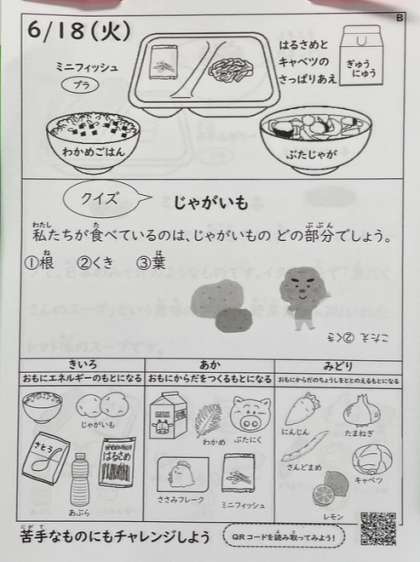 B
6/18(火)
はるさめと
キャベツの
さっぱりあえ
ぎゅう
にゅう
ミニフィッシュ
プラ
わかめごはん
ぶたじゃが
クイズ
じゃがいも
私たちが食べているのは、じゃがいもの どの部分でしょう。
①根 ②くき ③葉
こたえ ②くき
きいろ
おもにエネルギーのもとになる
じゃがいも
さとう
はるさめ
あぶら
あか
おもにからだをつくるもとになる
わかめ
ぶたにく
ささみフレーク
ミニフィッシュ
みどり
おもにからだのちょうしをととのえるもとになる
にんじん
たまねぎ
さんどまめ
キャベツ
レモン
苦手なものにもチャレンジしよう
QRコードを読み取ってみよう!